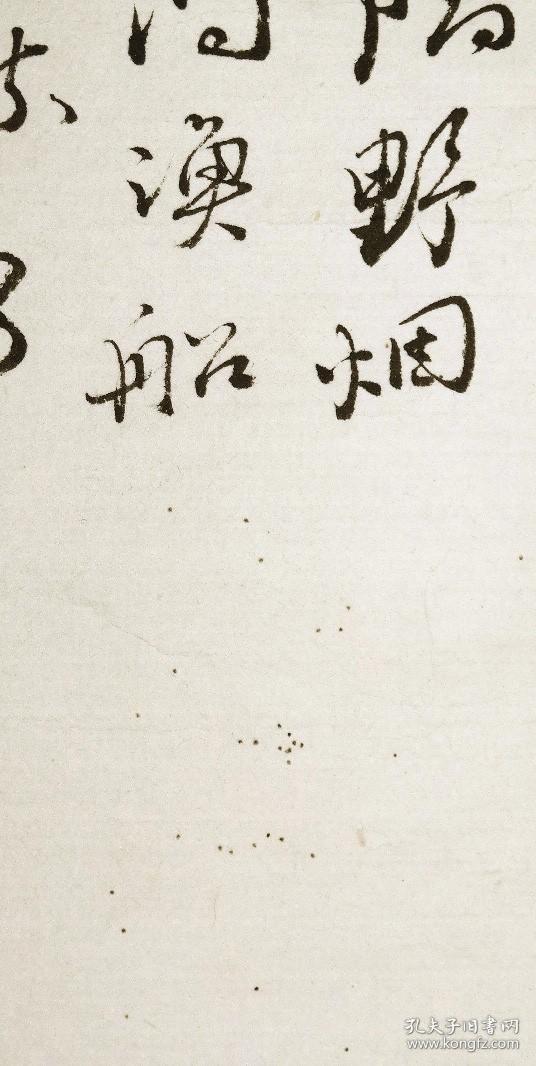 隔野烟
问渔船
孔夫子旧书网
www.kongfz.com